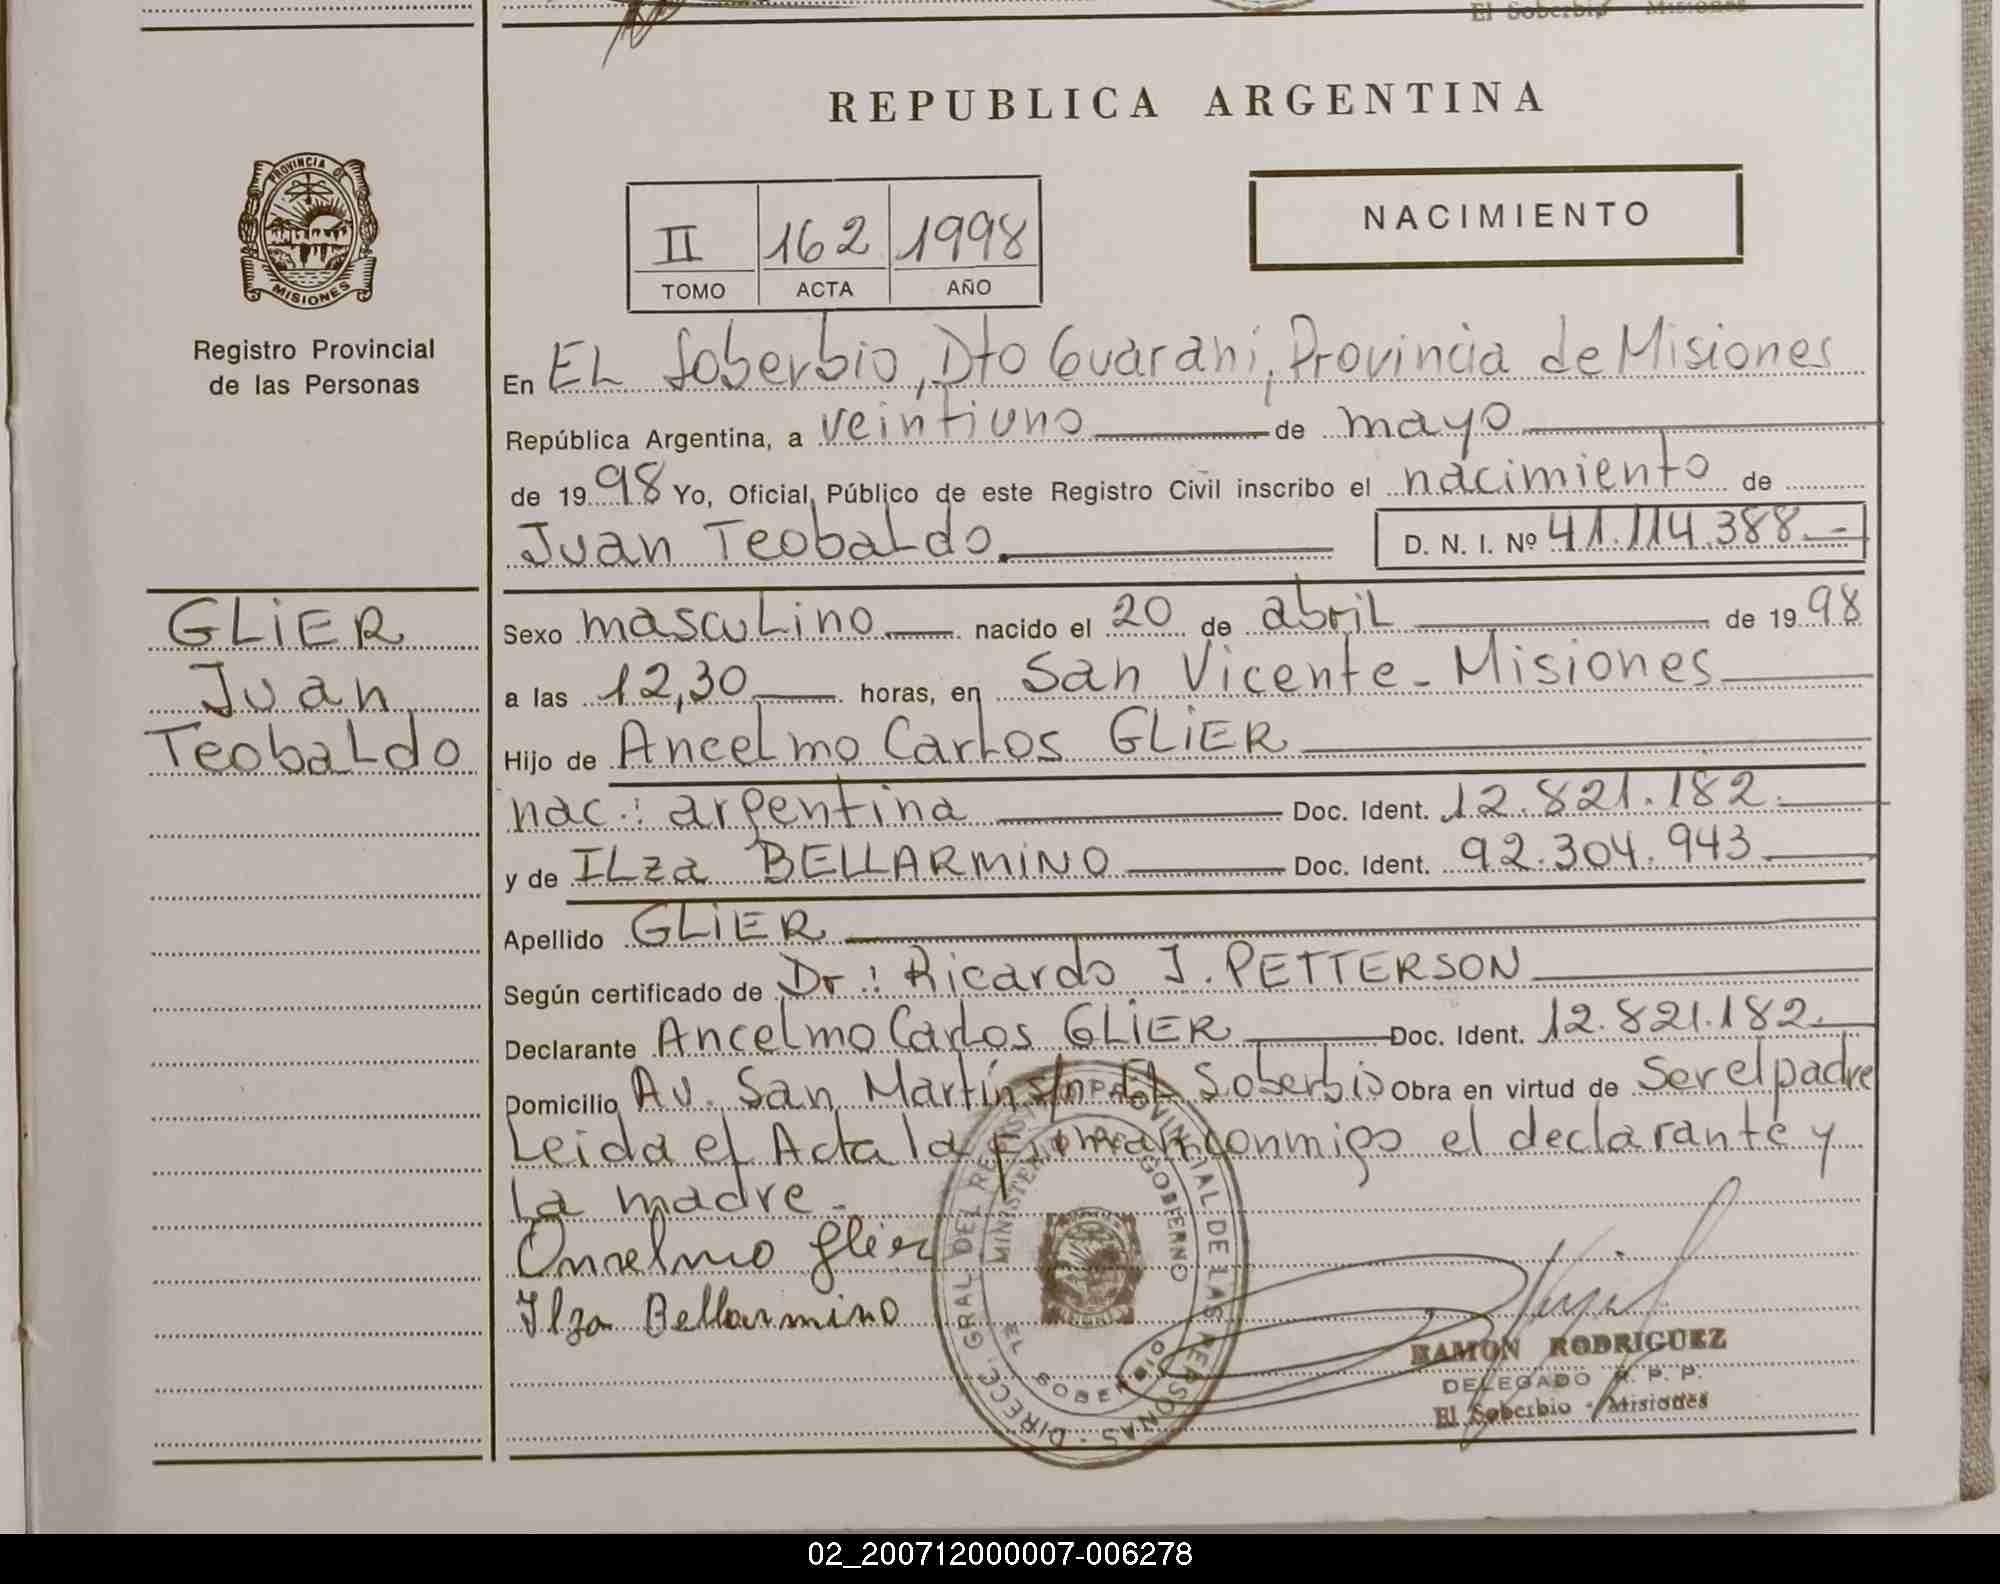 El Soberbio - Misiones
REPUBLICA ARGENTINA
PROVINCIA DE
MISIONES
Registro Provincial
de las Personas
NACIMIENTO
II 162 1998
TOMO ACTA AÑO
En EL Soberbio, Dto Guaraní, Provincia de Misiones
República Argentina, a veintiuno de mayo
de 1998 Yo, Oficial Público de este Registro Civil inscribo el nacimiento de
Juan Teobaldo. D. N. I. Nº 41.114.388.-
GLiER
Juan
Teobaldo
Sexo masculino nacido el 20 de abril de 1998
a las 12,30 horas, en San Vicente - Misiones
Hijo de Ancelmo Carlos GLiER
nac.: argentina Doc. Ident. 12.821.182.
y de ILza BELLARMiNO Doc. Ident. 92.304.943
Apellido GLiER
Según certificado de Dr: Ricardo J. PETTERSON
Declarante Ancelmo Carlos GLiER Doc. Ident. 12.821.182.
Domicilio Av. San Martín s/n El Soberbio Obra en virtud de ser el padre
Leida el Acta la firman conmigo el declarante y
la madre.-
Anselmo Glier
Ilza Bellarmino
DIRECC. GRAL DEL REGISTRO PROVINCIAL DE LAS PERSONAS
MINISTERIO DE GOBIERNO
EL SOBERBIO
RAMON RODRIGUEZ
DELEGADO R. P. P.
El Soberbio - Misiones
02_200712000007-006278